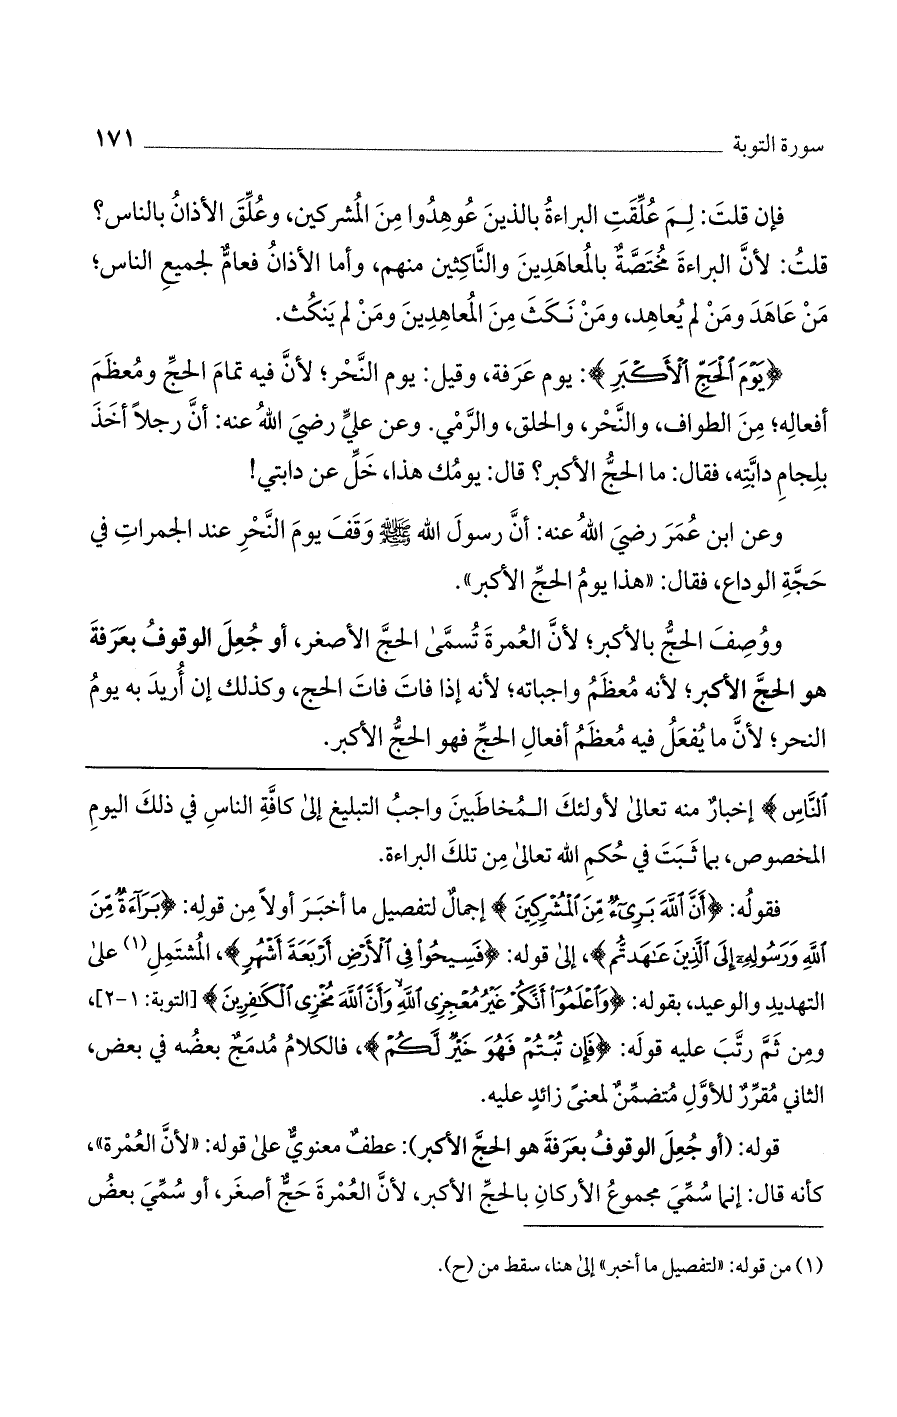 سورة التوبة ١٧١
فإن قلتَ: لِـمَ عُلِّقَتِ البراءةُ بالذينَ عُوهِدُوا مِنَ المُشركين، وعُلِّقَ الأذانُ بالناس؟
قلتُ: لأنَّ البراءةَ مُختَصَّةٌ بالمُعاهَدِينَ والنَّاكِثين منهم، وأما الأذانُ فعامٌّ لجميعِ الناس؛
مَنْ عَاهَدَ ومَنْ لم يُعاهِد، ومَنْ نَـكَثَ مِنَ المُعاهِدِينَ ومَنْ لم يَنكُث.
﴿يَوْمَ ٱلْحَجِّ ٱلْأَكْبَرِ﴾: يوم عَرَفة، وقيل: يوم النَّحْر؛ لأنَّ فيه تمامَ الحجِّ ومُعظَمَ
أفعالِه؛ مِنَ الطواف، والنَّحْر، والحلق، والرَّمْي. وعن عليٍّ رضيَ اللهُ عنه: أنَّ رجلاً أخَذَ
بلِجامِ دابَّتِه، فقال: ما الحجُّ الأكبر؟ قال: يومُك هذا، خَلِّ عن دابتي!
وعن ابن عُمَرَ رضيَ اللهُ عنه: أنَّ رسولَ الله ﷺ وَقَفَ يومَ النَّحْرِ عند الجمراتِ في
حَجَّةِ الوداع، فقال: «هذا يومُ الحجِّ الأكبر».
ووُصِفَ الحجُّ بالأكبر؛ لأنَّ العُمرةَ تُسمَّىٰ الحجَّ الأصغر، أو جُعِلَ الوقوفُ بعَرَفةَ
هو الحجَّ الأكبر؛ لأنه مُعظَمُ واجباته؛ لأنه إذا فاتَ فاتَ الحج، وكذلك إن أُريدَ به يومُ
النحر؛ لأنَّ ما يُفعَلُ فيه مُعظَمُ أفعالِ الحجِّ فهو الحجُّ الأكبر.
ٱلنَّاسِ﴾ إخبارٌ منه تعالىٰ لأولئكَ المُخاطَبينَ واجبُ التبليغ إلىٰ كافَّةِ الناسِ في ذلكَ اليومِ
المخصوص، بما ثَبَتَ في حُكمِ الله تعالىٰ مِن تلكَ البراءة.
فقولُه: ﴿أَنَّ ٱللَّهَ بَرِىٓءٌ مِّنَ ٱلْمُشْرِكِينَ﴾ إجمالٌ لتفصيل ما أخبَـرَ أولاً مِن قولِه: ﴿بَرَآءَةٌ مِّنَ
ٱللَّهِ وَرَسُولِهِۦٓ إِلَى ٱلَّذِينَ عَـٰهَدتُّم﴾، إلىٰ قوله: ﴿فَسِيحُوا۟ فِى ٱلْأَرْضِ أَرْبَعَةَ أَشْهُرٍ﴾، المُشتَمِلِ(١) علىٰ
التهديدِ والوعيد، بقوله: ﴿وَٱعْلَمُوٓا۟ أَنَّكُمْ غَيْرُ مُعْجِزِى ٱللَّهِ ۙ وَأَنَّ ٱللَّهَ مُخْزِى ٱلْكَـٰفِرِينَ﴾ [التوبة: ١-٢]،
ومِن ثَمَّ رتَّبَ عليه قولَه: ﴿فَإِن تُبْتُمْ فَهُوَ خَيْرٌ لَّكُمْ﴾، فالكلامُ مُدمَجٌ بعضُه في بعض،
الثاني مُقرِّرٌ للأوَّلِ مُتضمِّنٌ لمعنىً زائدٍ عليه.
قوله: (أو جُعِلَ الوقوفُ بعَرَفةَ هو الحجَّ الأكبر): عطفٌ معنويٌّ علىٰ قوله: «لأنَّ العُمْرة»،
كأنه قال: إنما سُمِّيَ مجموعُ الأركانِ بالحجِّ الأكبر، لأنَّ العُمْرةَ حَجٌّ أصغَر، أو سُمِّيَ بعضُ
(١) من قوله: «لتفصيل ما أخبر» إلىٰ هنا، سقط من (ح).